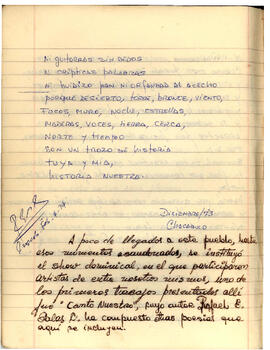 Ni guitarras sin dedos
ni crípticas palabras
ni huidizo pan ni orfandad al acecho
porque desierto, todos, bronce, viento,
focos, muro, noche, estrellas,
maderas, voces, hierba, cerca,
norte y tiempo
son un trozo de historia
tuya y mía,
historia nuestra.
Diciembre/73
Chacabuco
A poco de llegados a este pueblo, hasta
esos momentos abandonados, se instituyó
el show dominical, en el que participaron
artistas de entre nosotros mismos, uno de
los primeros trabajos presentados allí
fue "Canto Nuestro", cuyo autor, Rafael E.
Salas C. ha compuesto otras poesías que
aquí se incluyen.